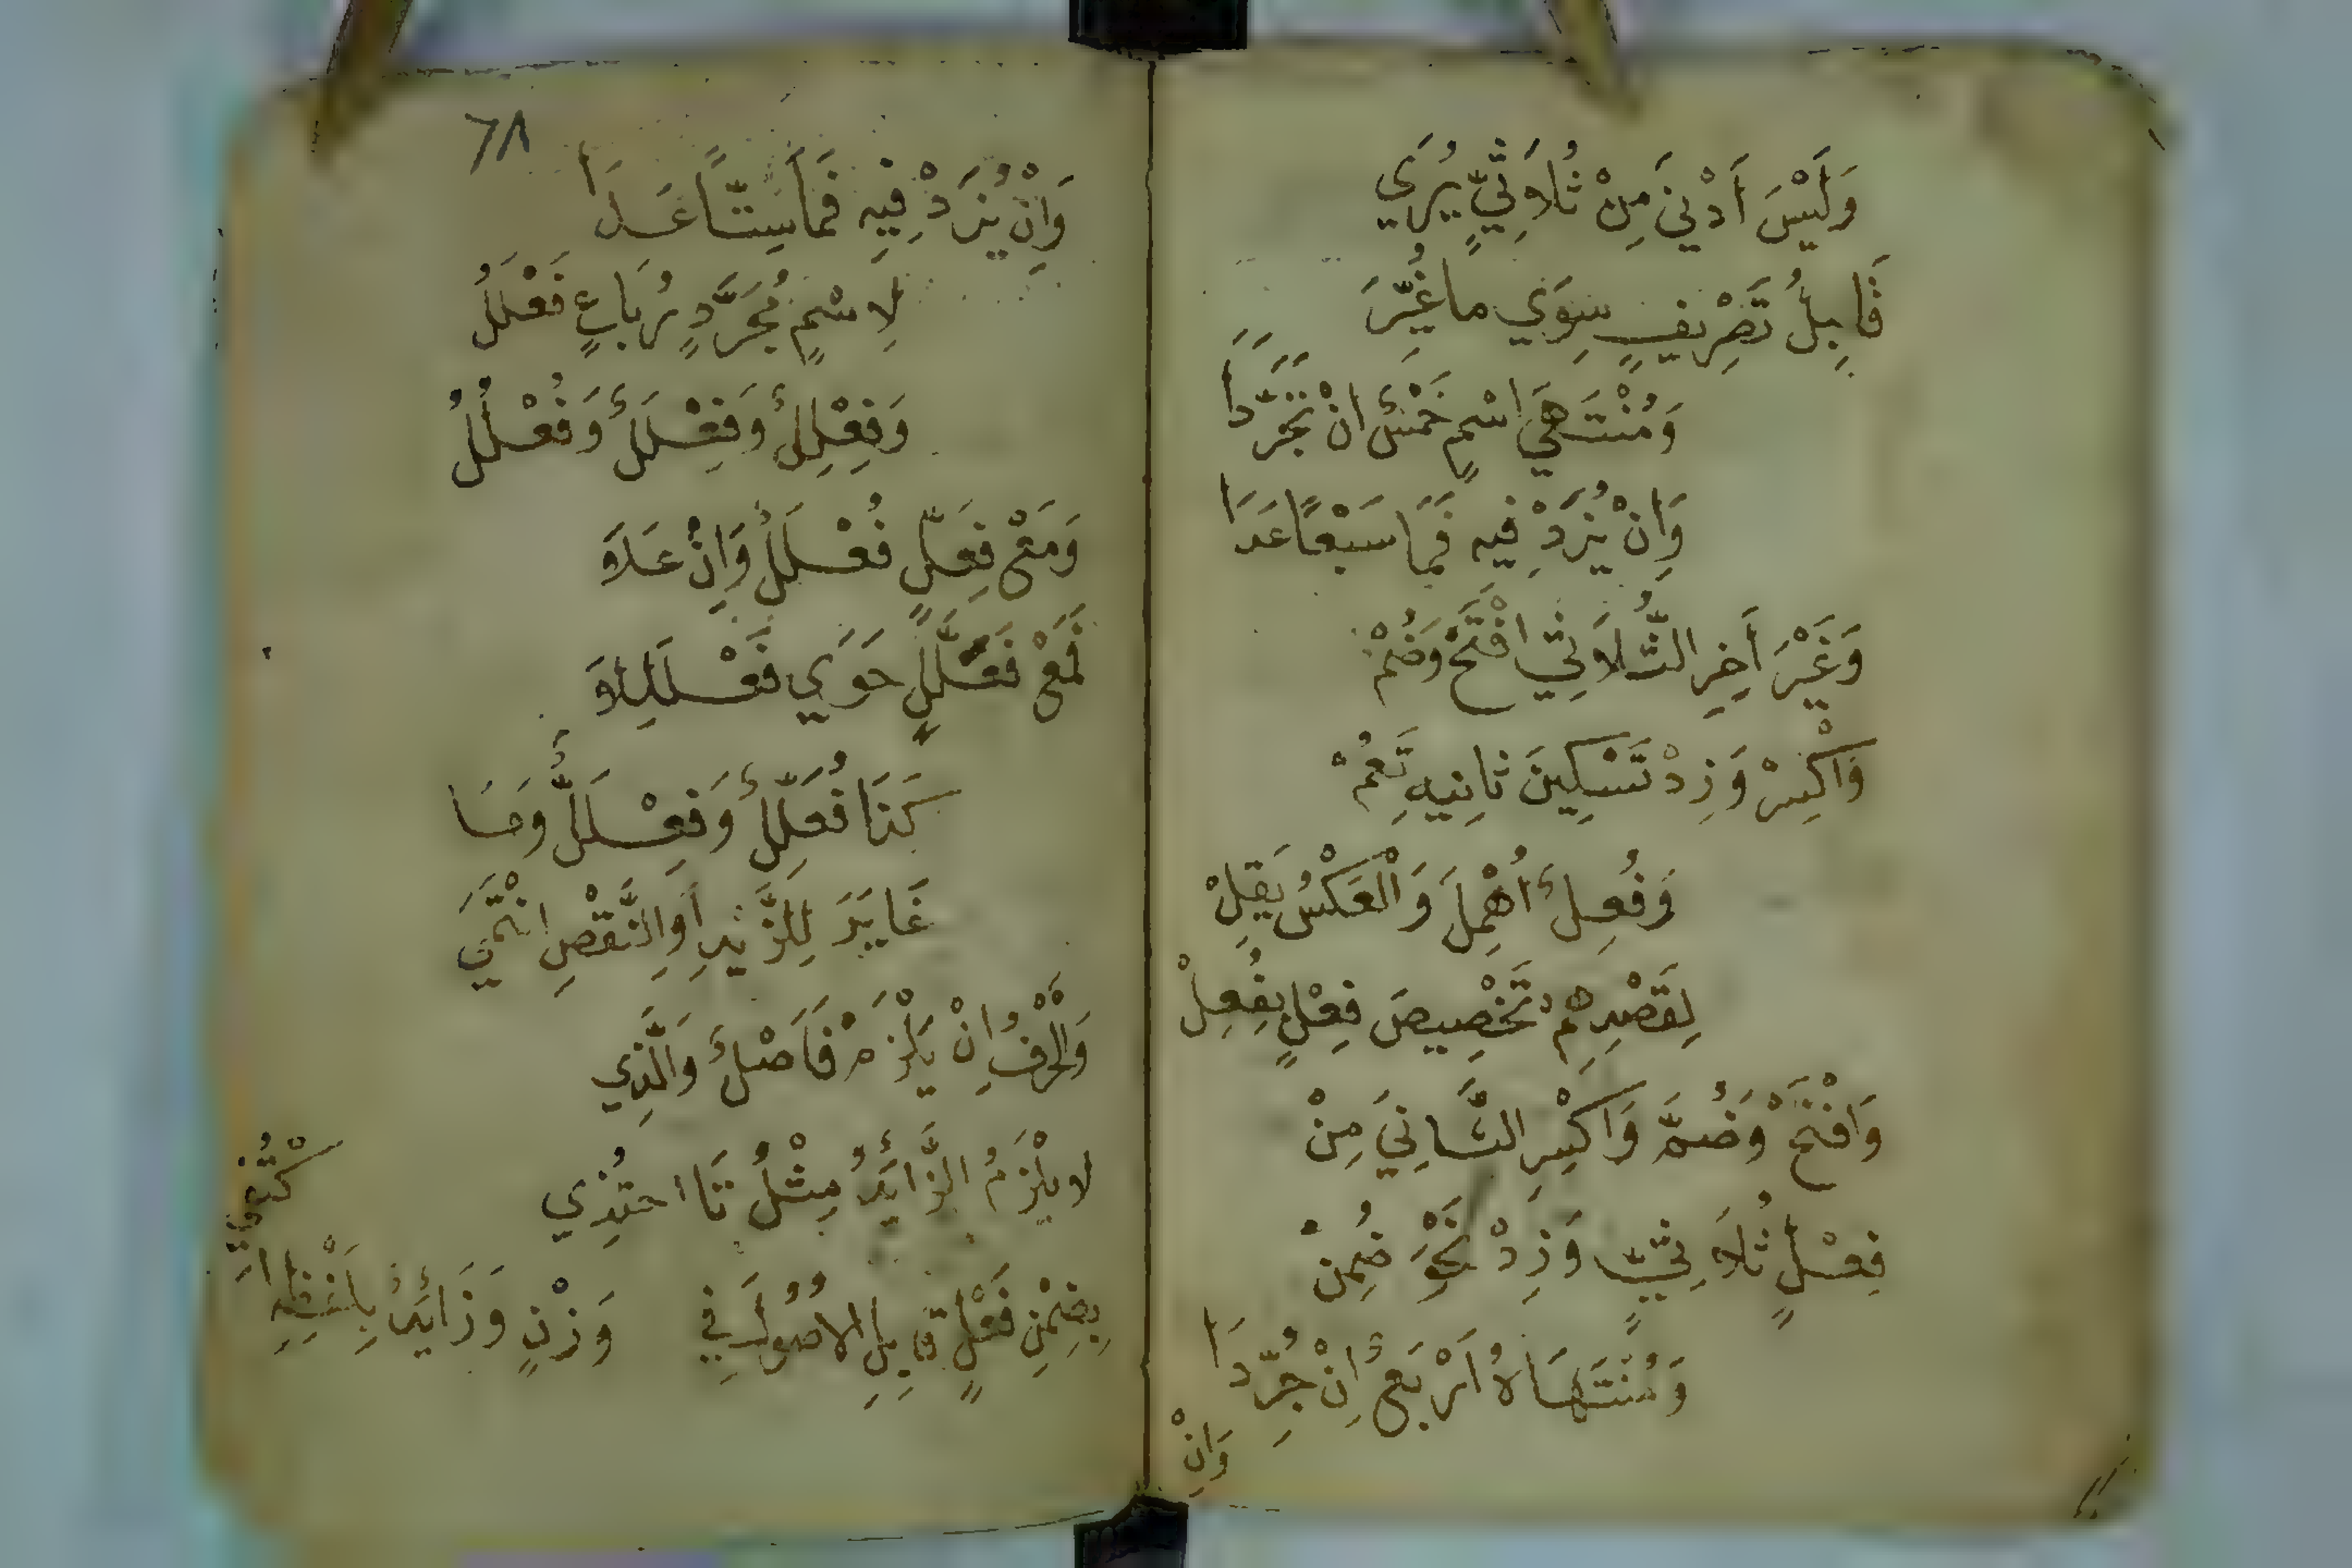 وَلَيْسَ اَدْنَي مِنْ ثُلَاثِيٍّ يُرَي
قَابِلَ تَصْرِيفٍ سِوَي ما غُيِّرَ
وَمُنْتَهَي اسْمٍ خَمْسٌ انْ تَجَرَّدَا
وَاِنْ يُزَدْ فِيهِ فَمَا سَبْعًا عَدَا
وَغَيْرَ اَخِرِ الثُّلَاثِي افْتَحْ وَضُمْ
وَاكْسِرْ وَزِدْ تَسْكِينَ ثانِيهِ تَعُمْ
وَفُعِلٌ اُهْمِلَ وَالْعَكْسُ يَقِلْ
لِقَصْدِهِمْ تَخْصِيصَ فِعْلٍ بِفُعِلْ
وَافْتَحْ وَضُمَّ وَاكْسِرِ الثَّانِيَ مِنْ
فِعْلٍ ثُلَاثِيٍّ وَزِدْ نَحْوَ ضُمِنْ
وَمُنْتَهَاهُ اَرْبَعٌ اِنْ جُرِّدَا
وَاِنْ
٦٨
وَاِنْ يُزَدْ فِيهِ فَمَا سِتًّا عَدَا
لِاسْمٍ مُجَرَّدٍ رُبَاعٍ فَعْلَلُ
وَفِعْلِلٌ وَفِعْلَلٌ وَفُعْلُلُ
وَمَعْ فِعَلٍّ فُعْلَلٌ وَاِنْ عَلَا
فَمَعْ فَعَلَّلٍ حَوَي فَعْلَلِلَا
كَذَا فُعَلِّلٌ وَفِعْلَلٌّ وَمَا
غَايَرَ لِلزَّيْدِ اَوِ النَّقْصِ انْتَمَي
وَالْحَرْفُ اِنْ يَلْزَمْ فَاَصْلٌ وَالَّذِي
لا يَلْزَمُ الزَّائِدُ مِثْلُ تَا احْتُذِي
بِضِمْنِ فَعْلٍ قَابِلِ الاُصُولَ فِي
وَزْنٍ وَزَائِدٌ بِلَفْظِهِ اكْتُفِي